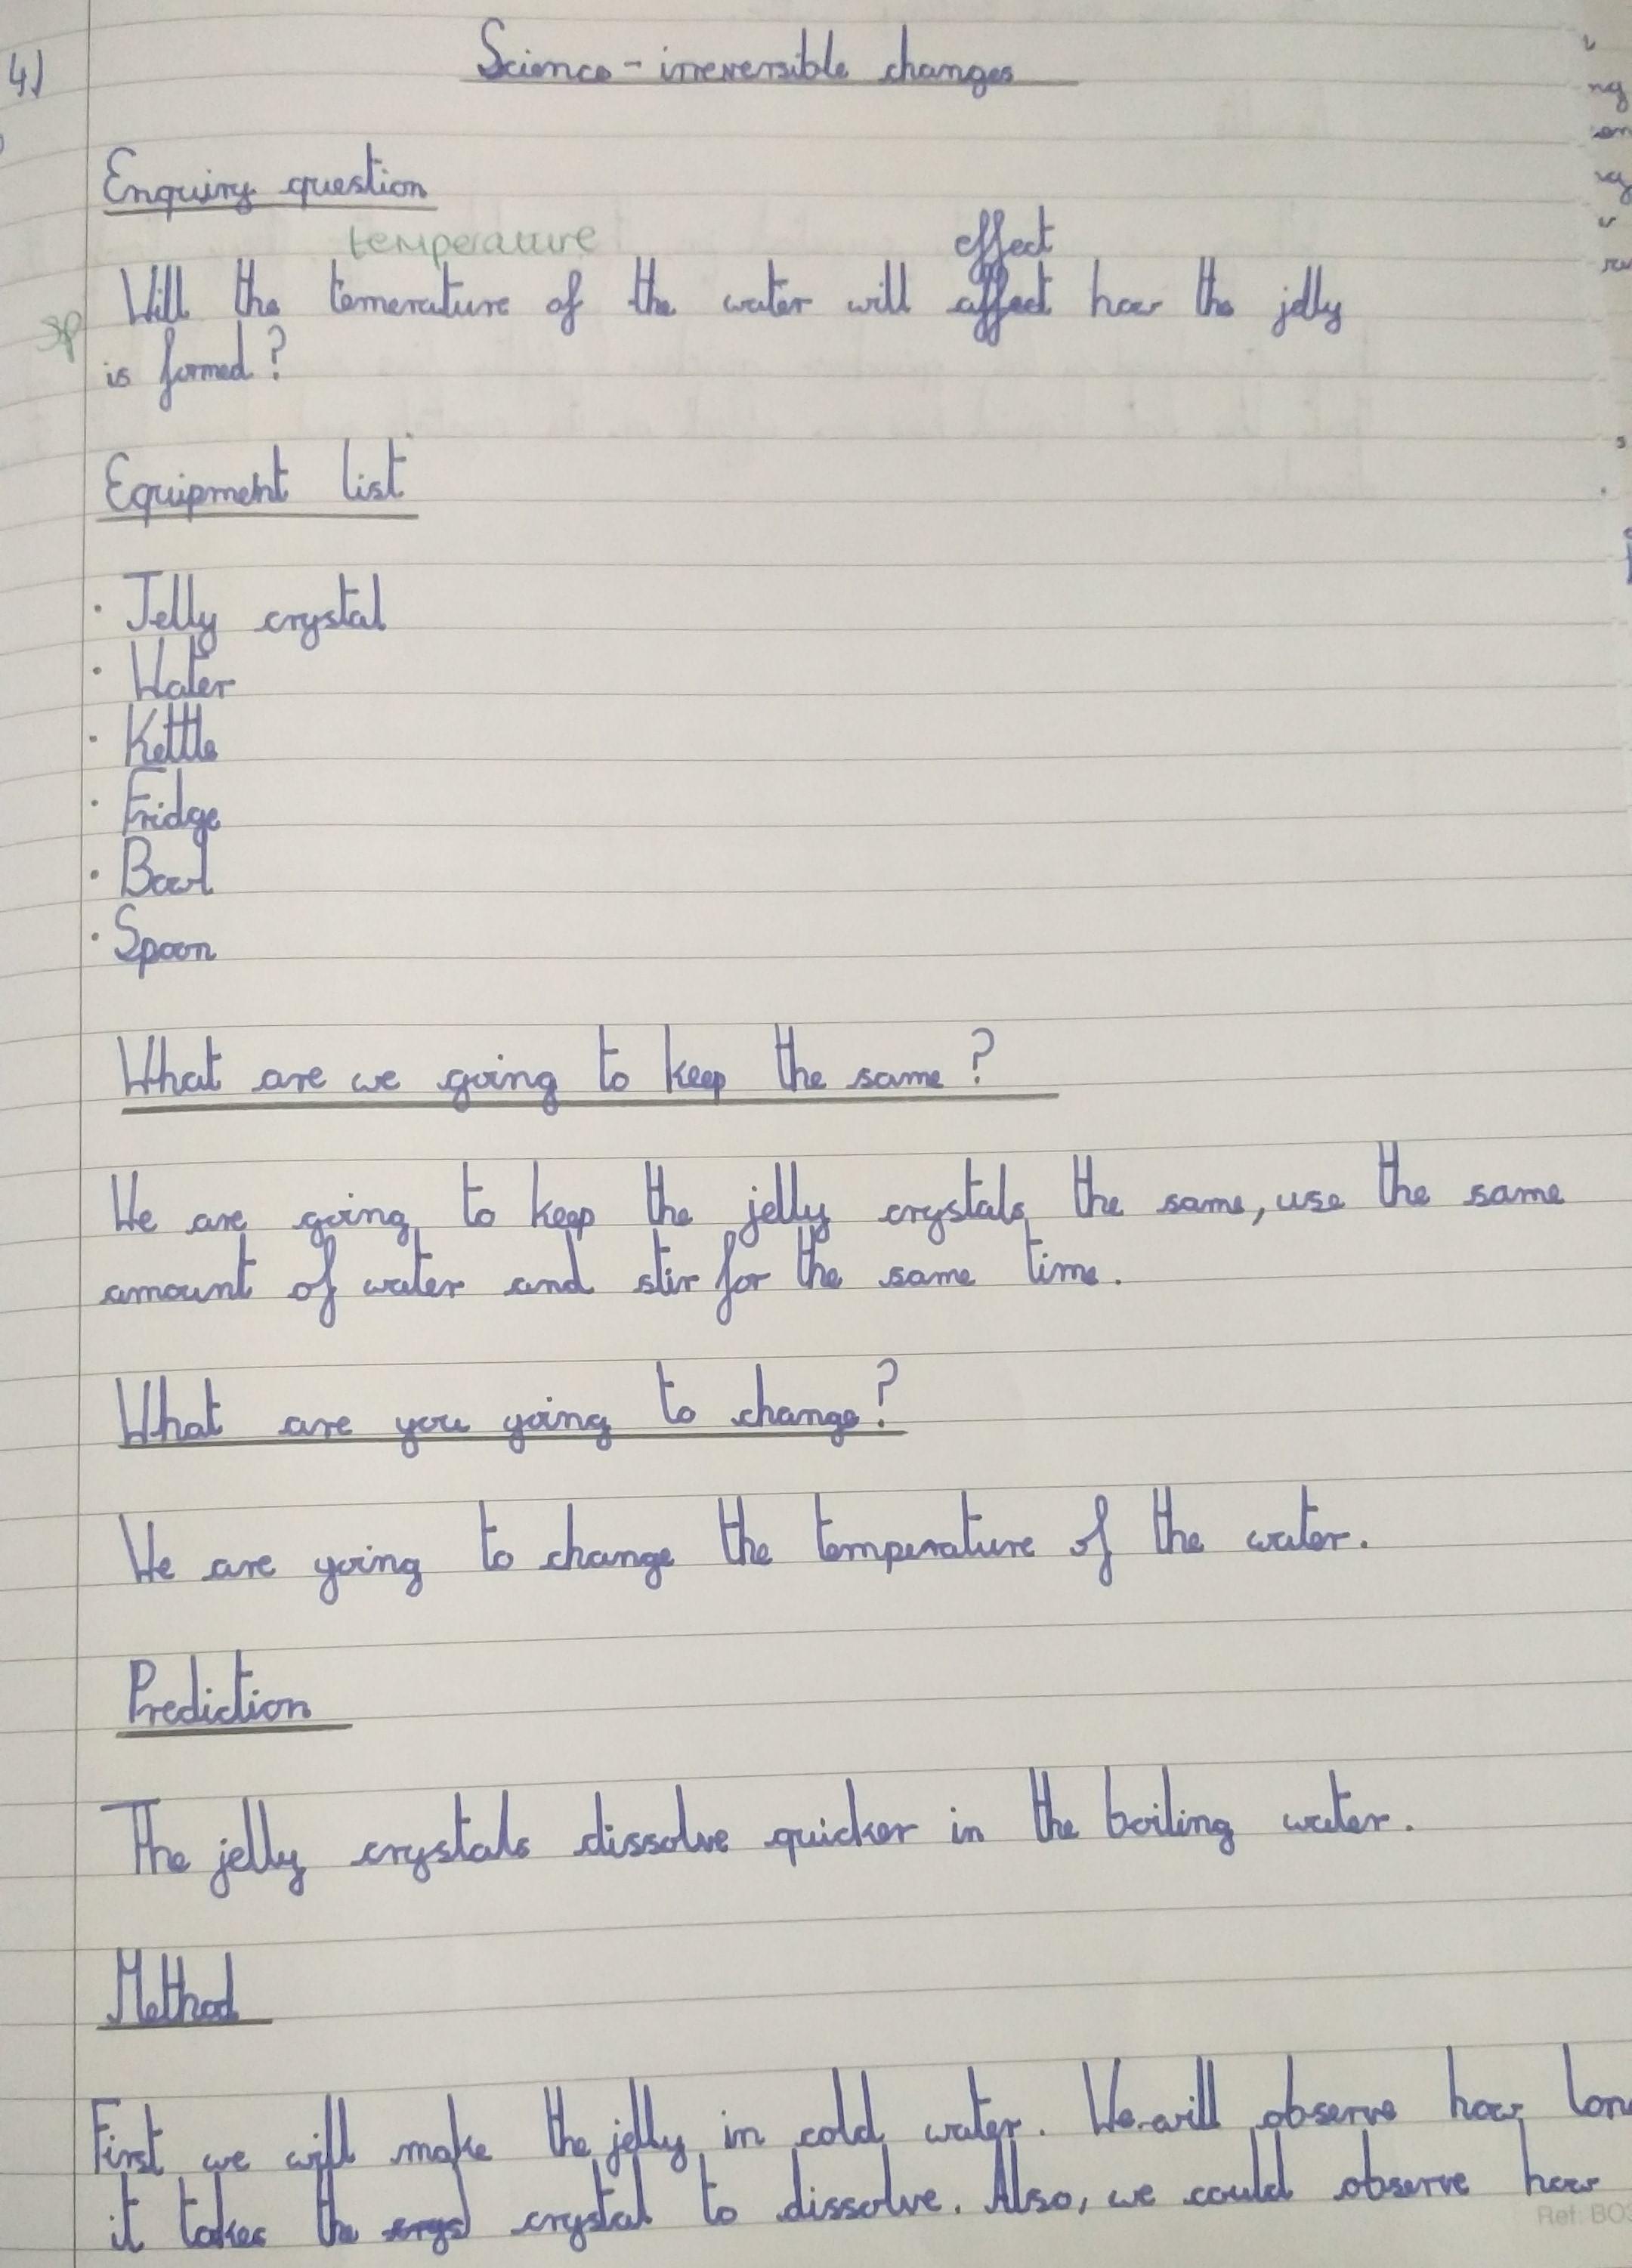 4)
Science - irreversible changes
Enquiry question
temperature effect
Will the temerature of the water will affect how the jelly
sp
is formed?
Equipment list
· Jelly crystal
· Water
· Kettle
· Fridge
· Bowl
· Spoon
What are we going to keep the same?
We are going to keep the jelly crystals the same, use the same
amount of water and stir for the same time.
What are you going to change?
We are going to change the temperature of the water.
Prediction
The jelly crystals dissolve quicker in the boiling water.
Method
First we will make the jelly in cold water. We will observe how lon
it takes the crystal to dissolve. Also, we could observe how
Ref: BO